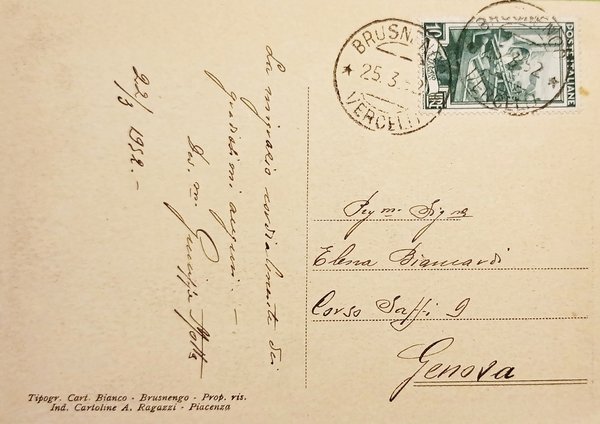 La ringrazio cordialmente dei
graditi auguri. -
Giuseppe
22/3 1952. -
BRUSNENGO
25.3.52
VERCELLI
BRUSNENGO
VERCELLI
10
POSTE ITALIANE
Sig.ra
Elena Biancardi
Corso Saffi 9
Genova
Tipogr. Cart. Bianco - Brusnengo - Prop. ris.
Ind. Cartoline A. Ragazzi - Piacenza